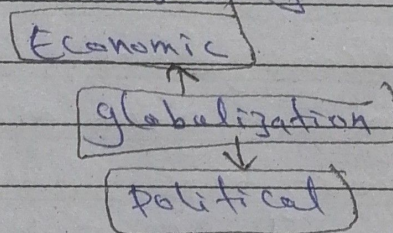 Economic
globalization
political